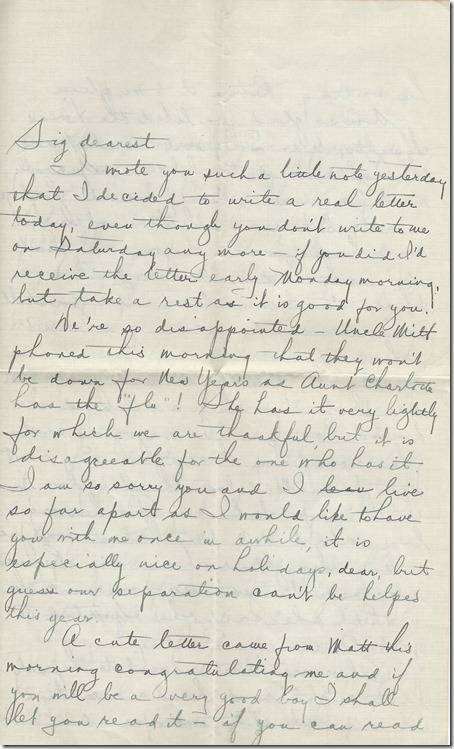 Sig dearest
I wrote you such a little note yesterday
that I decided to write a real letter
today, even though you don't write to me
on Saturday any more - if you did I'd
receive the letter early Monday morning,
but take a rest as it is good for you.
We're so disappointed - Uncle Milt
phoned this morning that they won't
be down for New Year's as Aunt Charlotte
has the "flu"! She has it very lightly
for which we are thankful, but it is
disagreeable for the one who has it.
I am so sorry you and I live
so far apart as I would like to have
you with me once in awhile, it is
especially nice on holidays, dear, but
guess our separation can't be helped
this year.
A cute letter came from Matt this
morning congratulating me and if
you will be a very good boy I shall
let you read it - if you can read